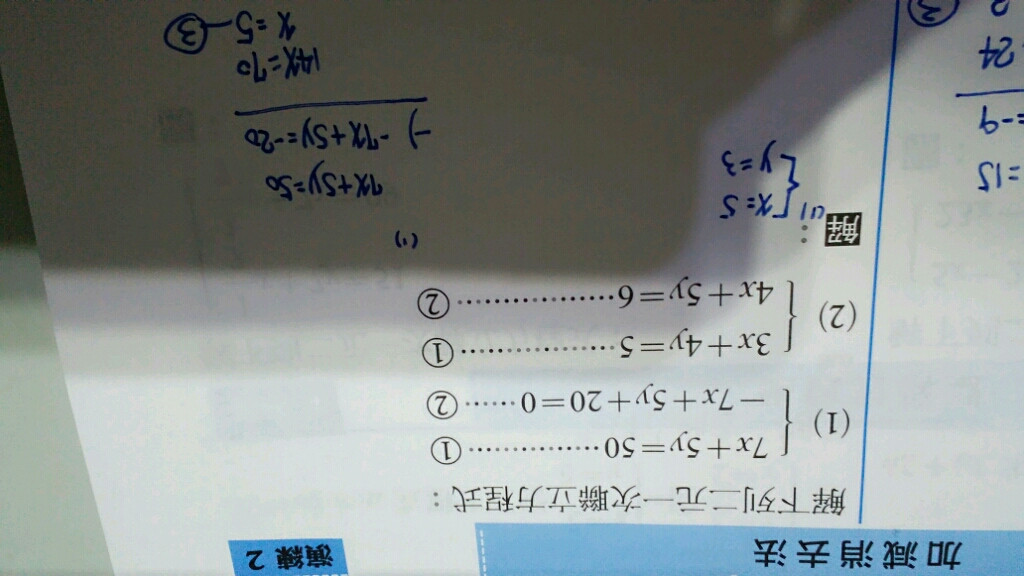 加減消去法
演練 2
解下列二元一次聯立方程式：
(1) { 7x+5y=50 ⋯⋯⋯⋯⋯ ①
−7x+5y+20=0 ⋯⋯ ②
(2) { 3x+4y=5 ⋯⋯⋯⋯⋯ ①
4x+5y=6 ⋯⋯⋯⋯⋯ ②
解：
(1) { x=5
y=3
(1)
7x+5y=50
-) -7x+5y=-20
14x=70
x=5 — ③
=15
=-9
24
2
③